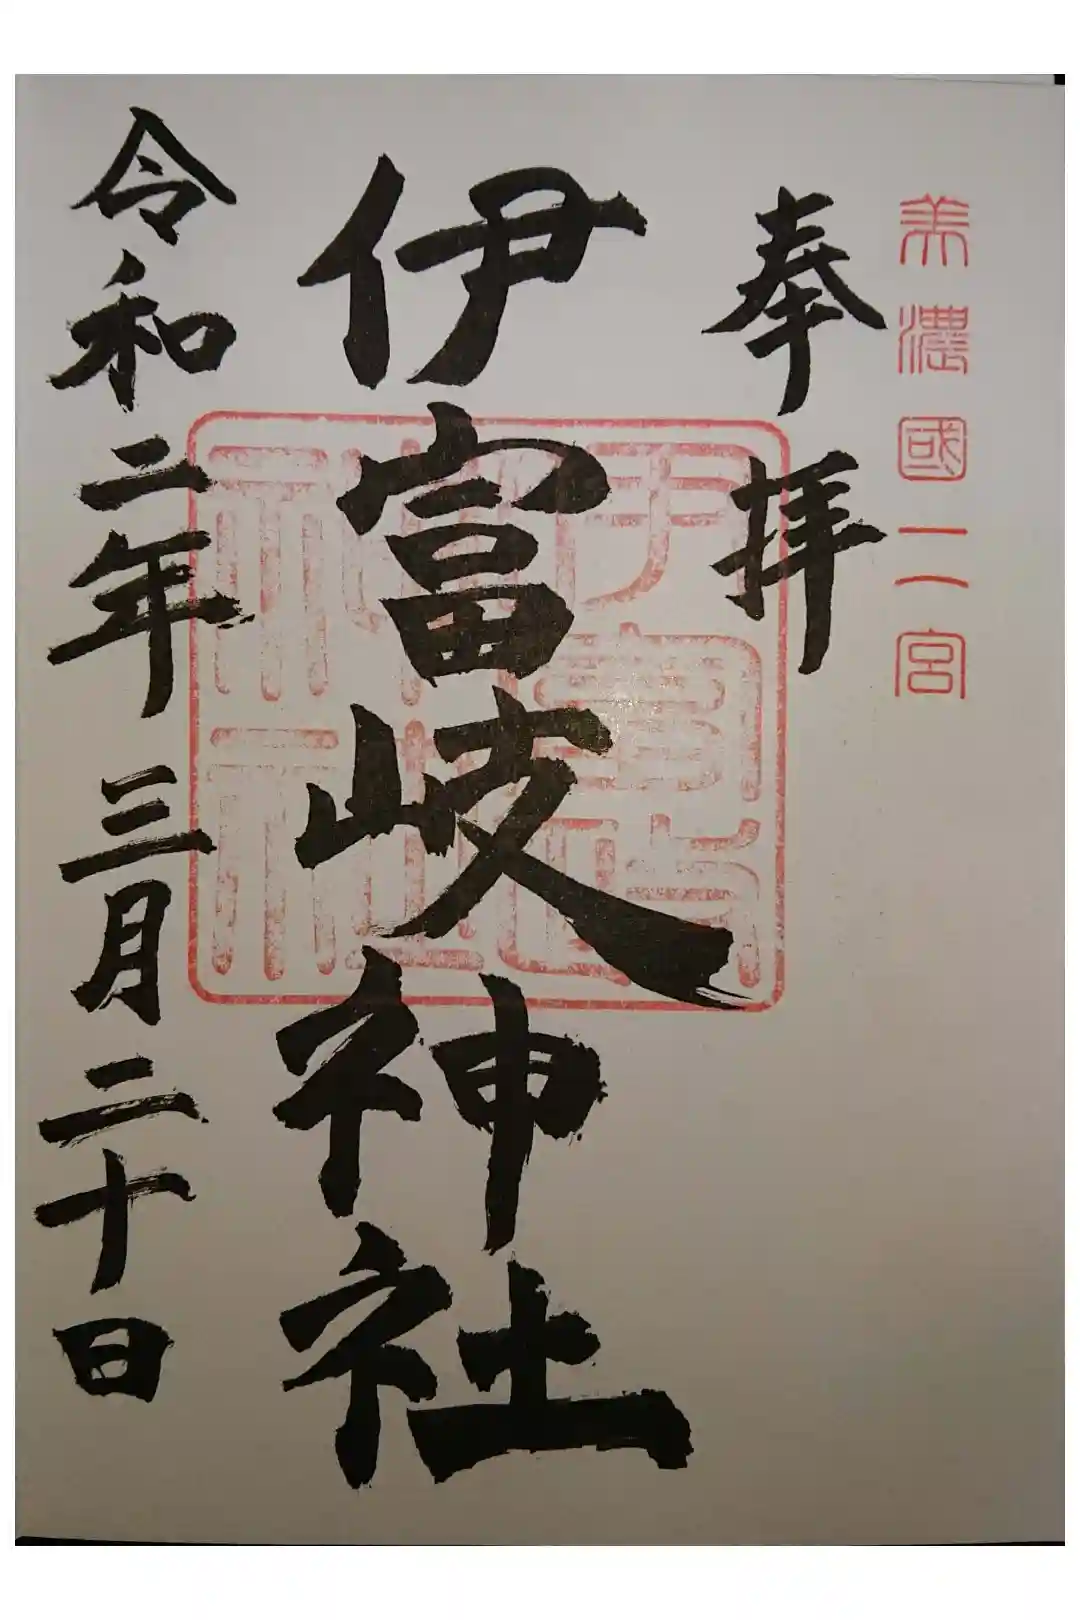 美濃國二宮
奉拝
伊富岐神社
伊富岐
神社
令和二年三月二十日